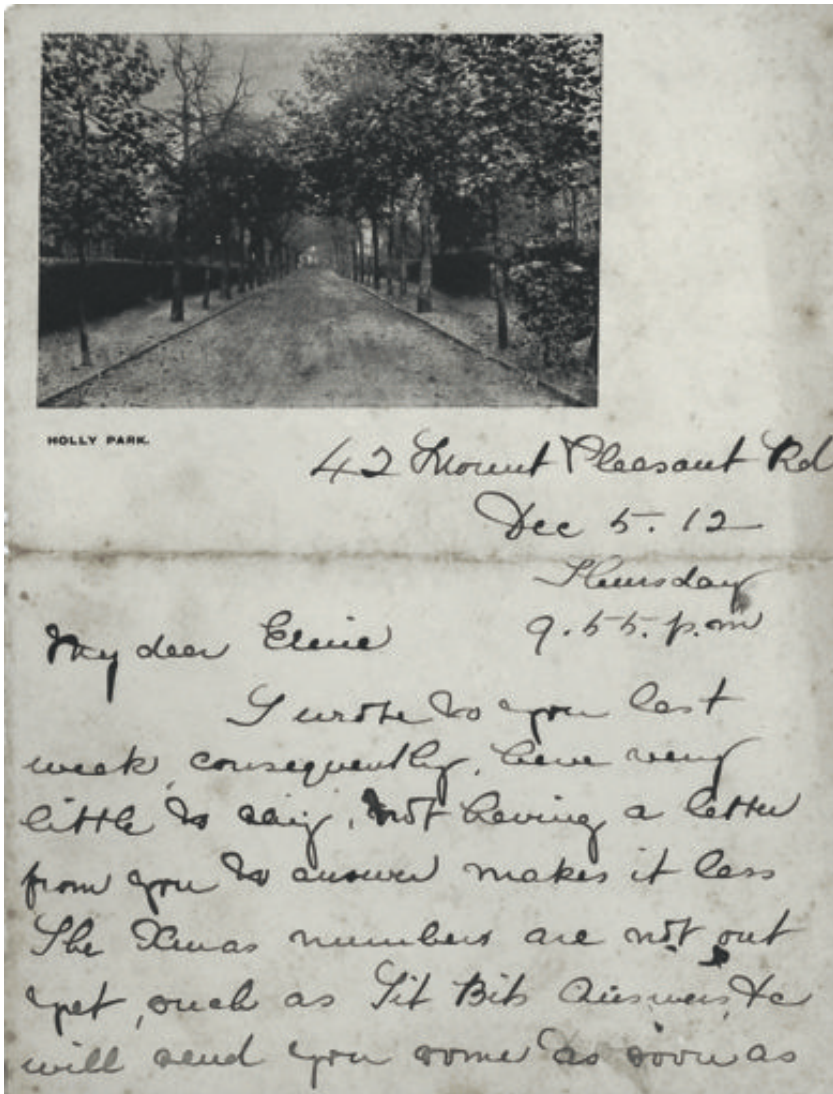 HOLLY PARK.
42 Mount Pleasant Rd
Dec 5. 12
Thursday
9.55. p.m
My dear Elsie
I wrote to you last
week, consequently, have very
little to say, not having a letter
from you to answer makes it less
The Xmas numbers are not out
yet, such as Tit Bits Answers, &c
will send you some as soon as